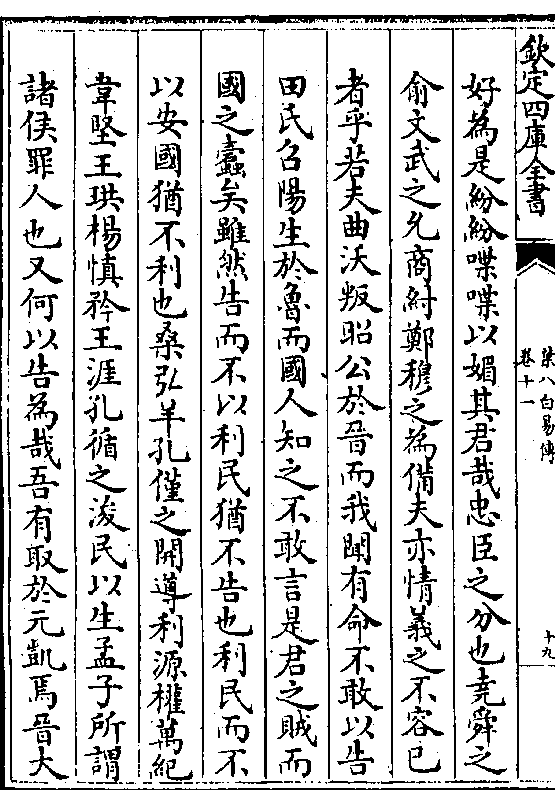 欽定四庫全書
葉八白易傳
卷十一
十九
好為是紛紛喋喋以媚其君哉忠臣之分也堯舜之
俞文武之允商紂鄭穆之為備夫亦情義之不容已
者乎若夫曲沃叛昭公於晉而我聞有命不敢以告
田氏召陽生於魯而國人知之不敢言是君之賊而
國之蠹矣雖然告而不以利民猶不告也利民而不
以安國猶不利也桑弘羊孔僅之開導利源權萬紀
韋堅王珙楊慎矜王涯孔循之浚民以生孟子所謂
諸侯罪人也又何以告為哉吾有取於元凱焉晉大